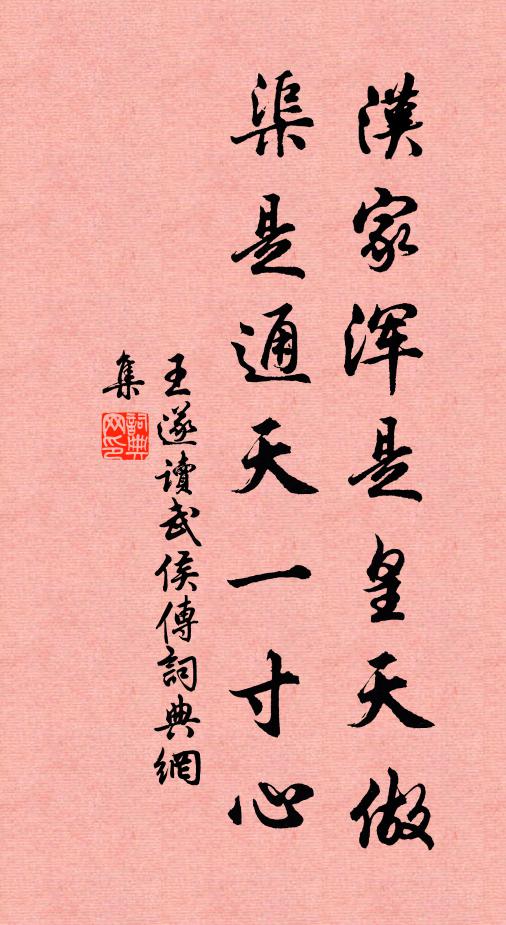 漢家浑是皇天做
渠是通天一寸心
王遂讀武侯傳詞典網
集
詞典
网印